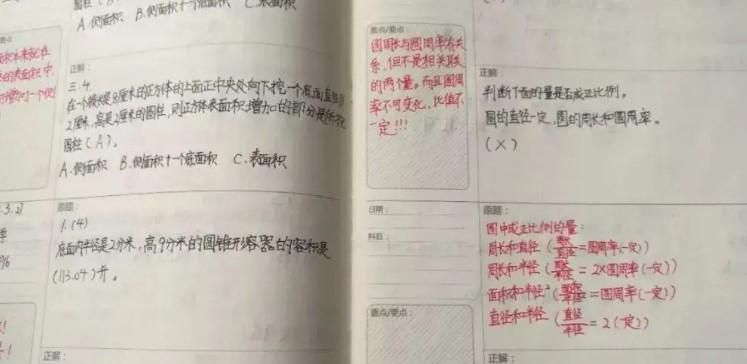 A.侧面积. B.侧面积十个底面积 C.表面积
正解:
三.4.
在一个棱长是3厘米的正方体的上面正中央处向下挖一个底面直径
2厘米,高是2厘米的圆柱,则正方体表面积增加的部分是所挖
圆柱(A)。
A.侧面积 B.侧面积十一个底面积 C.表面积
原题:
1.(4)
底面内半径是2分米,高9分米的圆锥形容器的容积是
(113.04)升。
正解:
重点/要点
圆周长与圆周率有关
系,但不是相关联
的两个量。而且圆周
率不可变化,比值不
一定!!!
日期:
科目:
重点/要点:
正解:
判断下面的量是否成正比例。
圆的直径一定,圆的周长和圆周率。
(×)
原题:
圆中成正比例的量:
周长和直径(周长/直径=圆周率(一定))
周长和半径(周长/半径=2×圆周率(一定))
面积和半径²(面积/半径²=圆周率(一定))
直径和半径(直径/半径=2(一定))
正解: